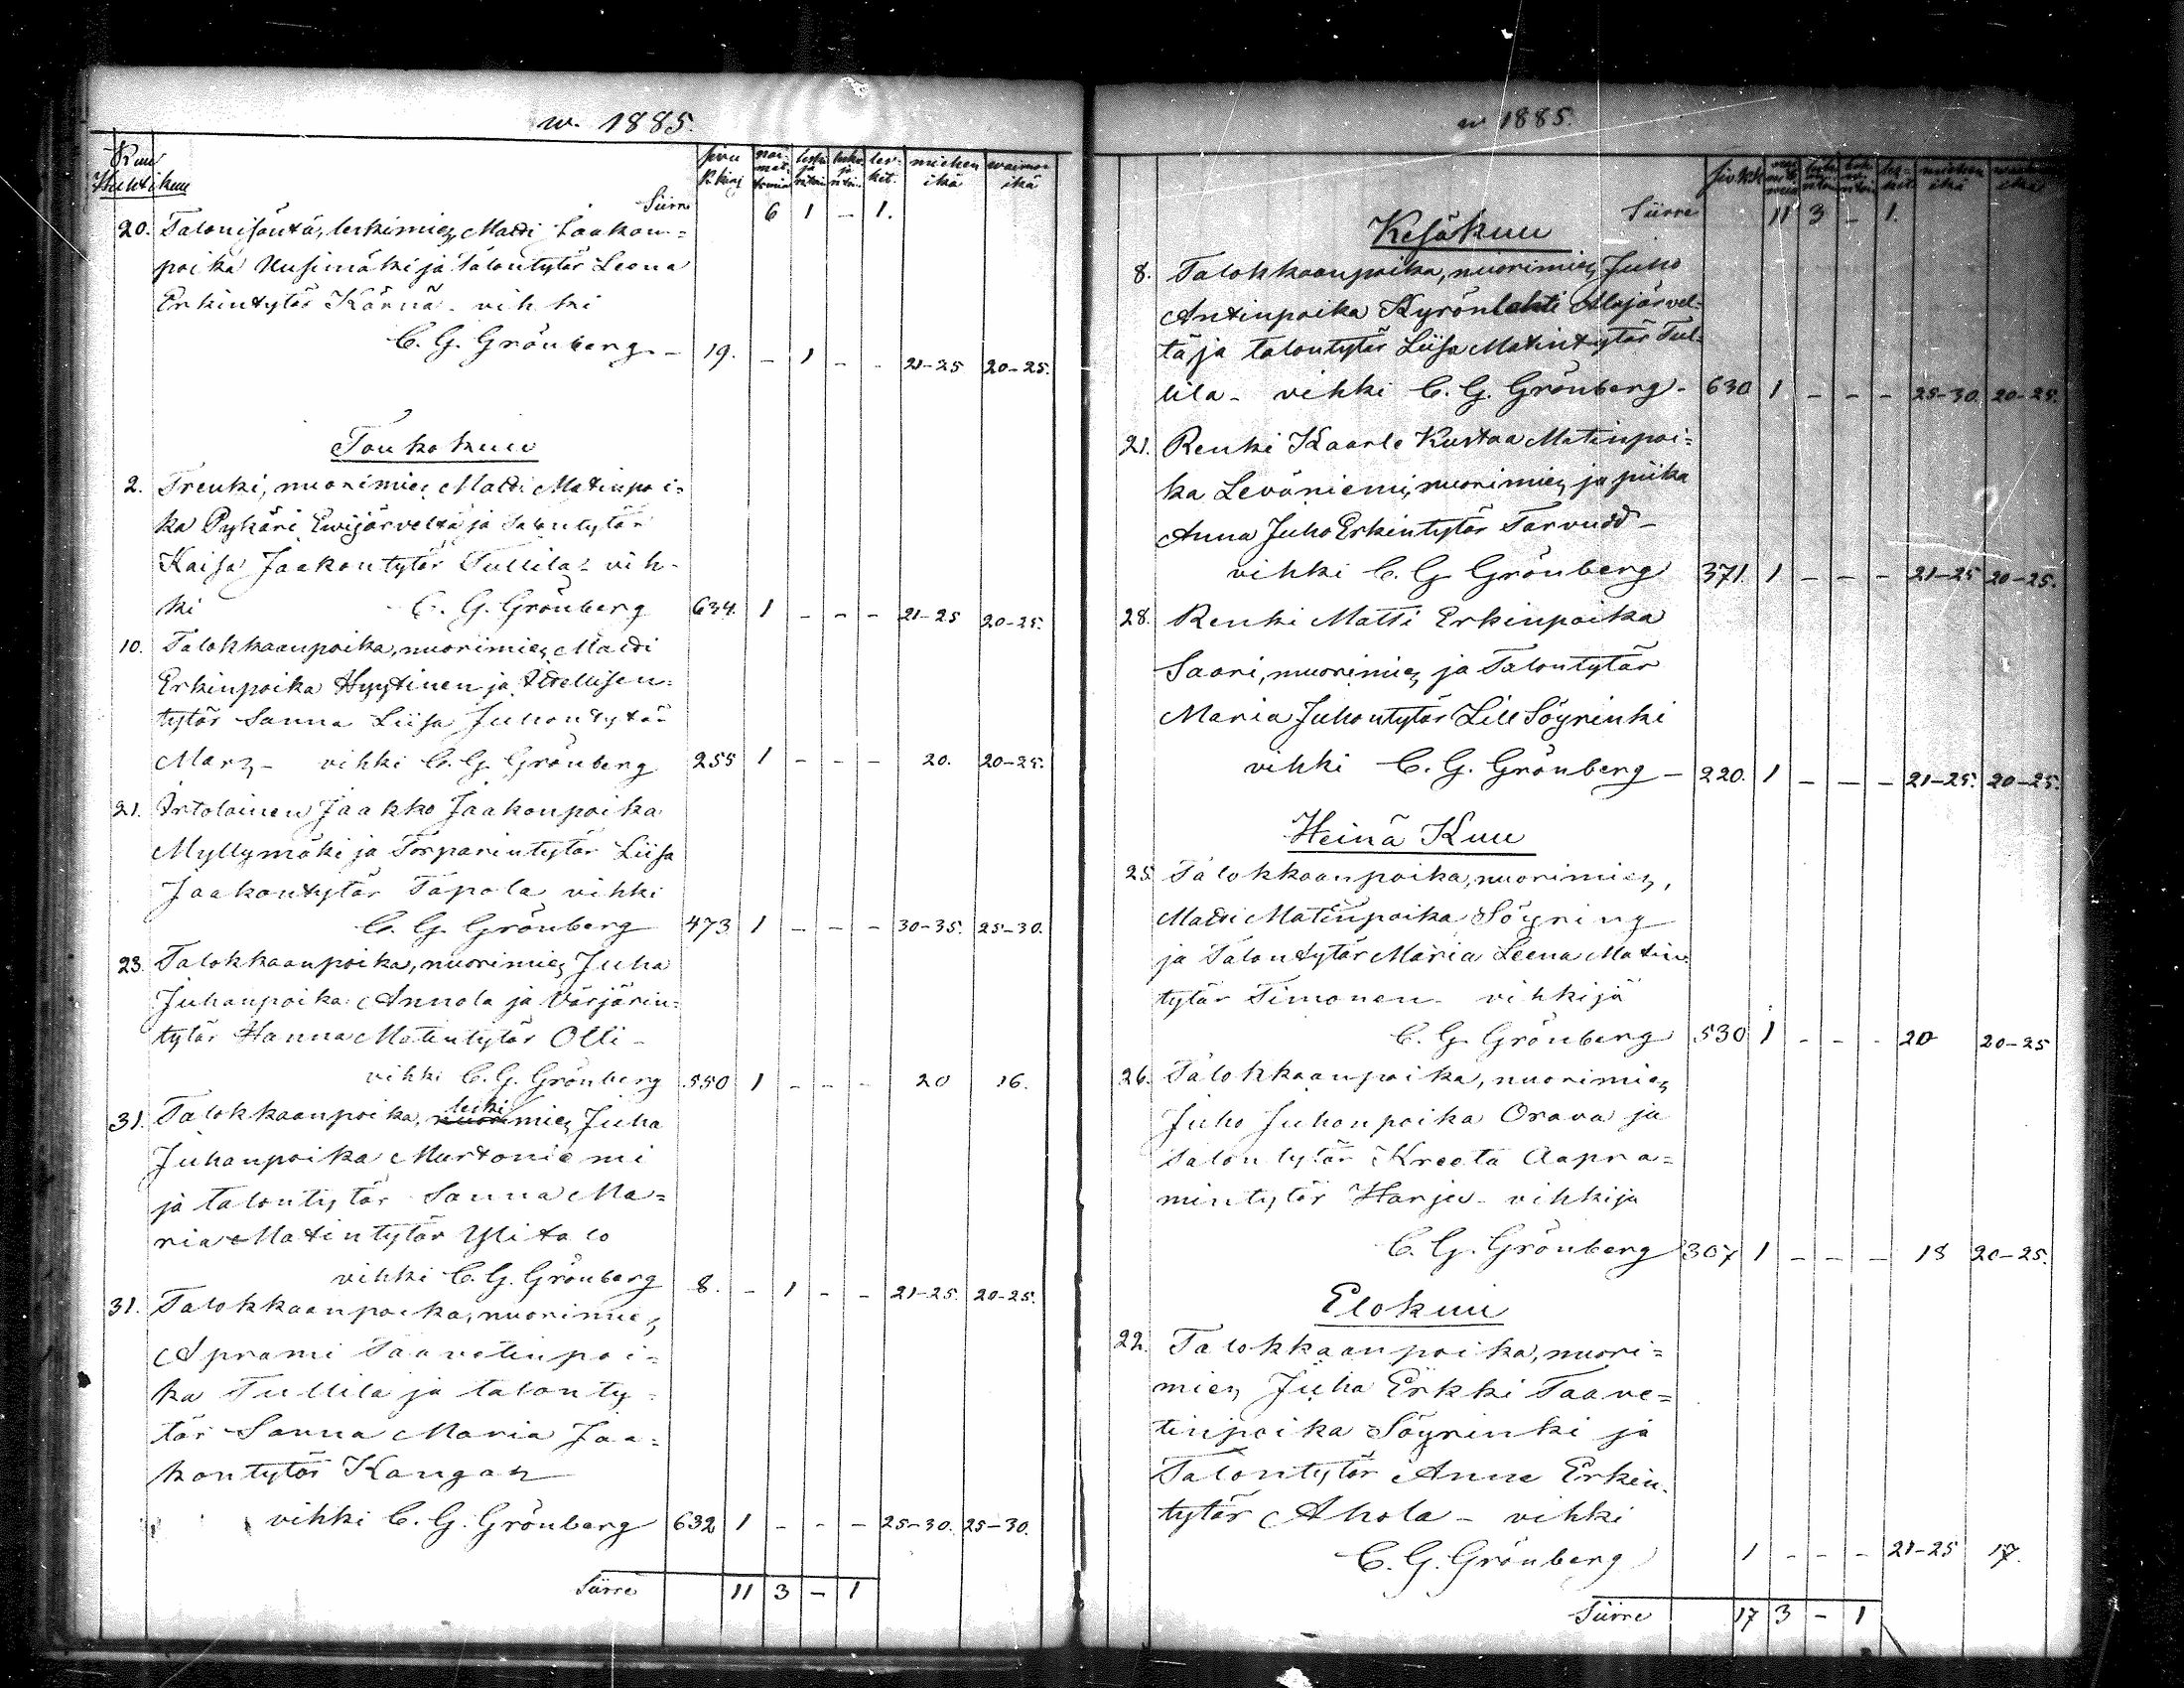 w. 1885.
Kuu
Huhtikuu
sivu R.kirj. naimattomia leski ja leski ja les-ket. miehen ikä waimon ikä
Siirre 6 1 – 1.
20. Talonisäntä, leskimies, Matti Jaakon=
poika Uusimäki ja talontytär Leena
Erkintytär Kärnä. vihki
C. G. Grönberg. – 19. – 1 – - 21–25 20–25.
Toukokuu
2. Trenki, nuorimies Matti Matinpoi=
ka Pykäri Ewijärveltä ja talontytär
Kaisa Jaakontytär Tullila - vih-
ki C. G. Grönberg 634. 1 – – – 21–25 20–25.
10. Talokkaanpoika, nuorimies Matti
Erkinpoika Hyytinen ja Itsellisen=
tytär Sanna Liisa Juhontytär
Marz – vihki C. G. Grönberg 255 1 – – – 20. 20–25.
21. Irtolainen Jaakko Jaakonpoika
Myllymäki ja Torparintytär Liisa
Jaakontytär Tapola vihki
C. G. Grönberg 473 1 – – – 30–35. 25–30.
23. Talokkaanpoika, nuorimies Juha
Juhanpoika Annola ja Värjärin=
tytär Hanna Matintytär Olli –
vihki C. G. Grönberg 550 1 – – – 20 16.
leski
31. Talokkaanpoika, nuorimies Juha
Juhanpoika Murtoniemi
ja talontytär Sanna Ma=
ria Matintytär Ylitalo
vihki C. G. Grönberg 8. – 1 – – 21–25. 20–25.
31. Talokkaanpoika, nuorimies
Aprami Taavetinpoi=
ka Tullila ja talonty=
tär Sanna Maria Jaa=
kontytär Kangas
vihki C. G. Grönberg 632 1 – – – 25–30. 25–30.
Siirre 11 3 – 1
w 1885.
siv. miehen ikä
Siirre 11 3 – 1.
Kesäkuu
8. Talokkaanpoika, nuorimies Juho
Antinpoika Kyrönlahti Alajärvel=
tä ja talontytär Liisa Matintytär Tul-
lila – vihki C. G. Grönberg – 630 1 – – – 25–30. 20–25.
21. Renki Kaarle Kustaa Matinpoi=
ka Leväniemi, nuorimies, ja piika
Anna Juho Erkintytär Tarvudd –
vihki C. G. Grönberg 371. 1 – – – 21–25 20–25.
28. Renki Matti Erkinpoika
Saari, nuorimies ja Talontytär
Maria Juhontytär Lill Söyrinki
vihki C. G. Grönberg – 220. 1 – – – 21–25. 20–25.
Heinä Kuu
25 Talokkaanpoika, nuorimies,
Matti Matinpoika Söyring
ja Talontytär Maria Leena Matin
tytär Timonen – vihkijä
C. G. Grönberg 530 1 – – - 20 20–25
26. Talokkaanpoika, nuorimies
Juho Juhonpoika Orava ja
Talontytär Kreeta Aapra=
mintytär Harju – vihkijä
C. G. Grönberg 307 1 – – – 18 20–25.
Elokuu
22. Talokkaanpoika, nuori=
mies Juha Erkki Taave=
tinpoika Söyrinki ja
Talontytär Anna Erkin-
tytär Ahola – vihki
C. G. Grönberg 1 – – – 21–25 17.
Siirre 17 3 – 1